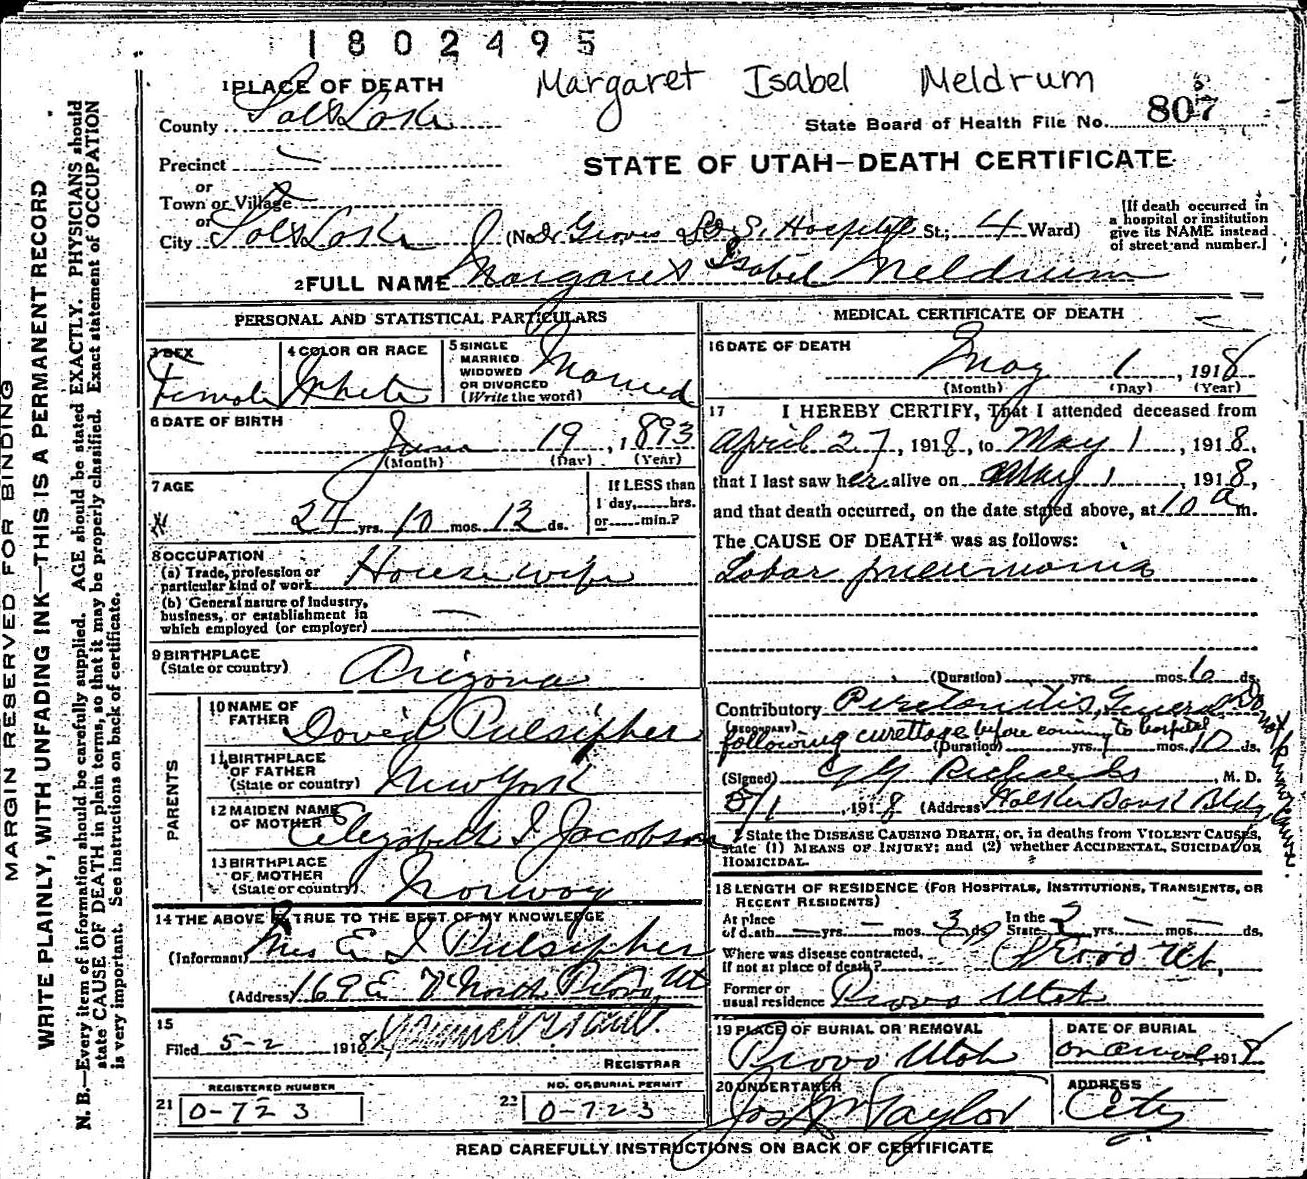 1802495
Margaret Isabel Meldrum
1 PLACE OF DEATH
County Salt Lake
State Board of Health File No. 807
Precinct
STATE OF UTAH—DEATH CERTIFICATE
or
Town or Village
or
City Salt Lake (No. Groves L.D.S. Hospital St.; 4 Ward)
[If death occurred in a hospital or institution give its NAME instead of street and number.]
2 FULL NAME Margaret Isabel Meldrum
PERSONAL AND STATISTICAL PARTICULARS
3 SEX Female
4 COLOR OR RACE White
5 SINGLE MARRIED WIDOWED OR DIVORCED (Write the word) Married
6 DATE OF BIRTH
June 19, 1893
(Month) (Day) (Year)
7 AGE
24 yrs. 10 mos. 12 ds.
If LESS than 1 day,......hrs. or......min.?
8 OCCUPATION
(a) Trade, profession or particular kind of work Housewife
(b) General nature of Industry, business, or establishment in which employed (or employer) —
9 BIRTHPLACE
(State or country) Arizona
PARENTS
10 NAME OF FATHER David Pulsipher
11 BIRTHPLACE OF FATHER (State or country) New York
12 MAIDEN NAME OF MOTHER Elizabeth I Jacobson
13 BIRTHPLACE OF MOTHER (State or country) Norway
14 THE ABOVE IS TRUE TO THE BEST OF MY KNOWLEDGE
(Informant) Mrs E. I Pulsipher
(Address) 169 E North Provo Ut
15
Filed 5-2 1918
REGISTRAR
REGISTERED NUMBER
21 0-723
NO. OF BURIAL PERMIT
22 0-723
MEDICAL CERTIFICATE OF DEATH
16 DATE OF DEATH
May 1, 1918
(Month) (Day) (Year)
17 I HEREBY CERTIFY, That I attended deceased from
April 27, 1918, to May 1, 1918,
that I last saw her alive on May 1, 1918,
and that death occurred, on the date stated above, at 10 a m.
The CAUSE OF DEATH* was as follows:
Lobar pneumonia
(Duration) yrs. mos. 6 ds.
Contributory Peritonitis, General
(SECONDARY)
following curettage before coming to hospital
(Duration) yrs. mos. 10 ds.
(Signed) G G Richards, M. D.
5/1, 1918 (Address) Walker Bank Bldg
* State the DISEASE CAUSING DEATH, or, in deaths from VIOLENT CAUSES, state (1) MEANS OF INJURY; and (2) whether ACCIDENTAL, SUICIDAL OR HOMICIDAL.
18 LENGTH OF RESIDENCE (FOR HOSPITALS, INSTITUTIONS, TRANSIENTS, OR RECENT RESIDENTS)
At place of death — yrs. — mos. 3 ds. In the State yrs. — mos. — ds.
Where was disease contracted, If not at place of death? Provo Ut.
Former or usual residence Provo Utah
19 PLACE OF BURIAL OR REMOVAL
Provo Utah
DATE OF BURIAL
on arrival, 1918
20 UNDERTAKER
Jos Wm Taylor
ADDRESS
City
READ CAREFULLY INSTRUCTIONS ON BACK OF CERTIFICATE
MARGIN RESERVED FOR BINDING
WRITE PLAINLY, WITH UNFADING INK—THIS IS A PERMANENT RECORD
N. B.—Every item of information should be carefully supplied. AGE should be stated EXACTLY. PHYSICIANS should
state CAUSE OF DEATH in plain terms, so that it may be properly classified. Exact statement of OCCUPATION
is very important. See instructions on back of certificate.